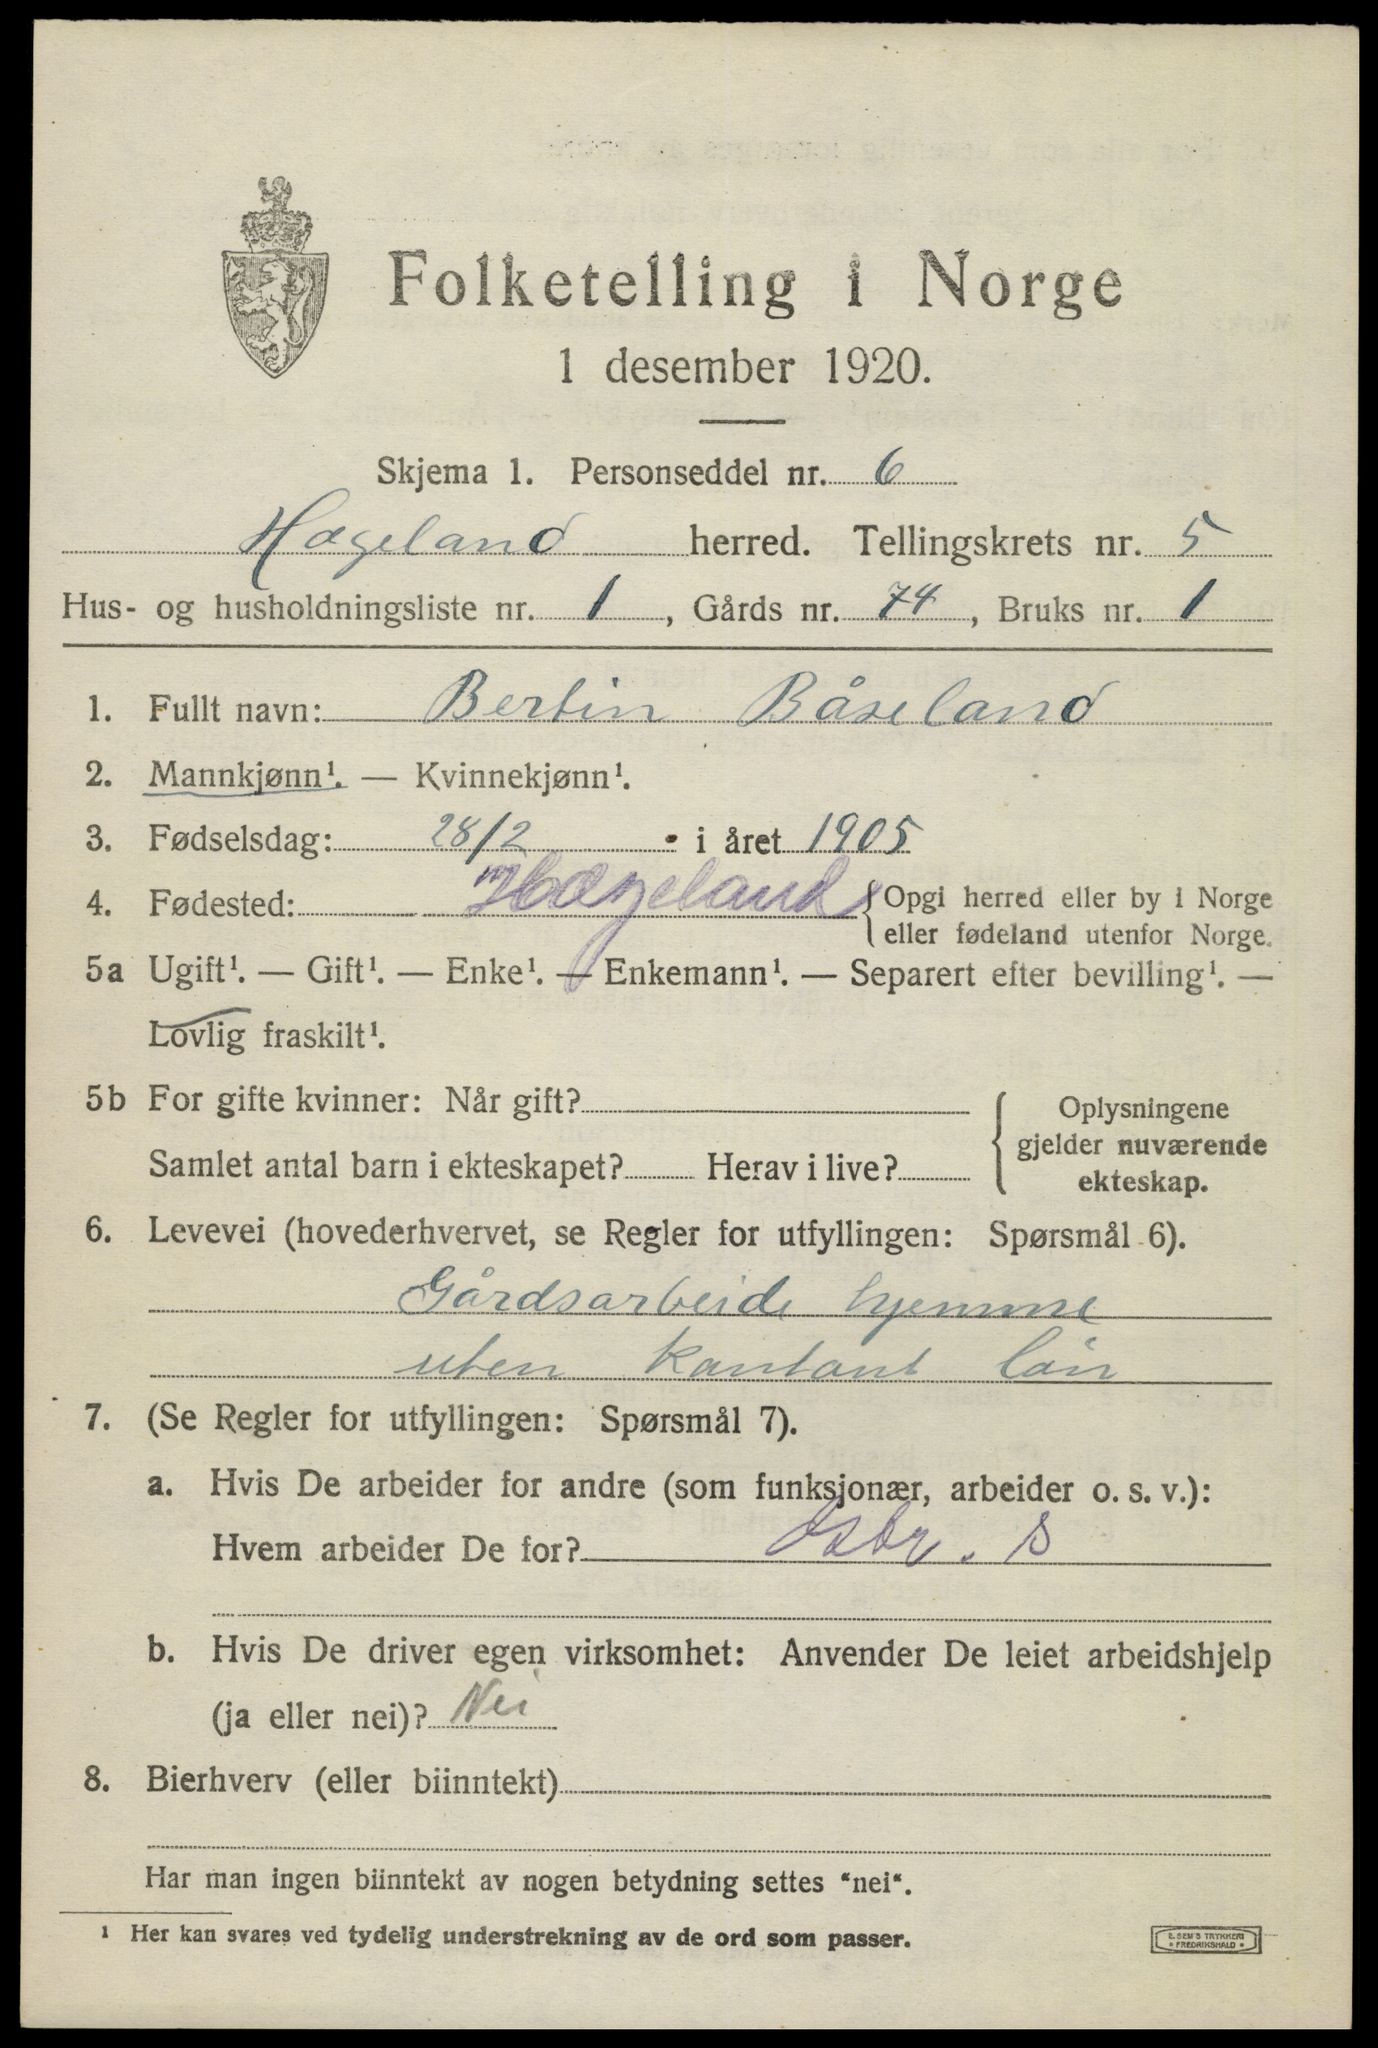 Folketelling i Norge
1 desember 1920.
Skjema 1. Personseddel nr. 6
Hægeland herred. Tellingskrets nr. 5
Hus- og husholdningsliste nr. 1, Gårds nr. 74, Bruks nr. 1
1. Fullt navn: Bertin Båseland
2. Mannkjønn¹. — Kvinnekjønn¹.
3. Fødselsdag: 28/2 i året 1905
4. Fødested: Hægeland {Opgi herred eller by i Norge
eller fødeland utenfor Norge.
5a Ugift¹. — Gift¹. — Enke¹. — Enkemann¹. — Separert efter bevilling¹. —
Lovlig fraskilt¹.
5b For gifte kvinner: Når gift?
Samlet antal barn i ekteskapet? Herav i live?
Oplysningene
gjelder nuværende
ekteskap.
6. Levevei (hovederhvervet, se Regler for utfyllingen: Spørsmål 6).
Gårdsarbeide hjemme
uten kontant løn
7. (Se Regler for utfyllingen: Spørsmål 7).
a. Hvis De arbeider for andre (som funksjonær, arbeider o. s. v.):
Hvem arbeider De for?
b. Hvis De driver egen virksomhet: Anvender De leiet arbeidshjelp
(ja eller nei)? Nei
8. Bierhverv (eller biinntekt)
Har man ingen biinntekt av nogen betydning settes "nei".
¹ Her kan svares ved tydelig understrekning av de ord som passer.
E. SEM'S TRYKKERI
• FREDRIKSHALD •